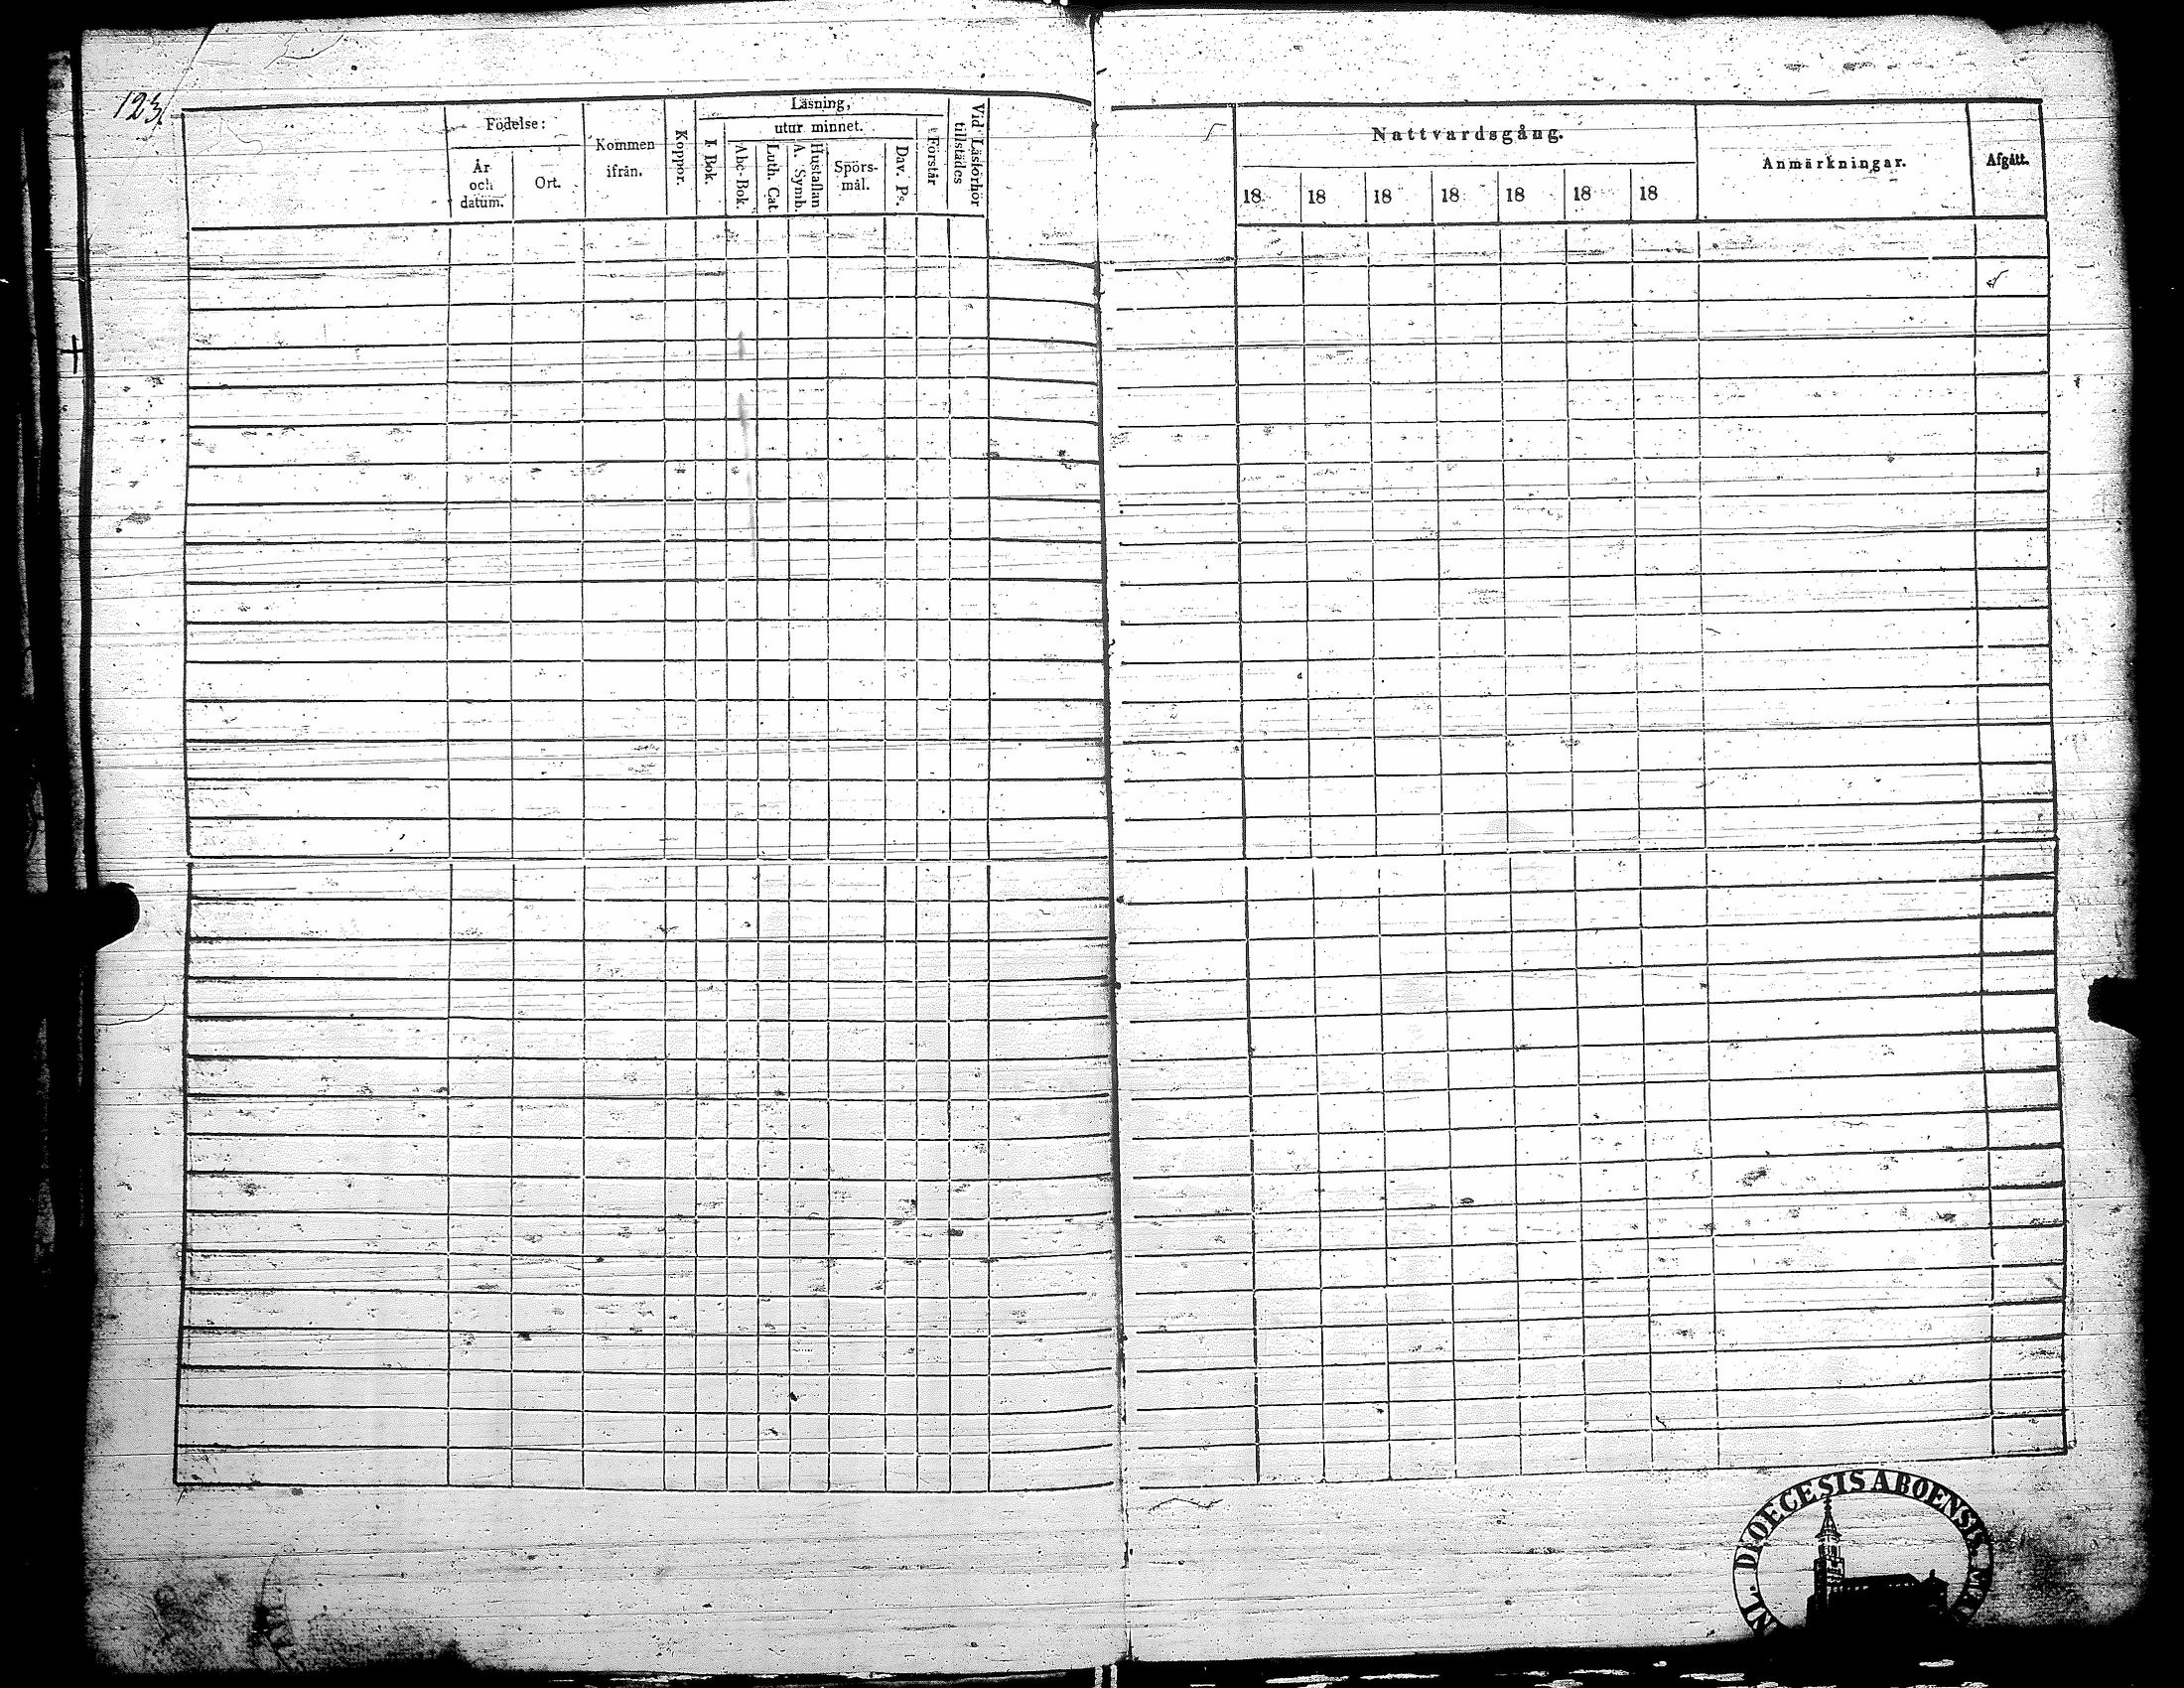 123.
Födelse:
År
och
datum.
Ort.
Kommen
ifrån.
Koppor.
Läsning,
I Bok.
utur minnet.
Abc-Bok.
Luth. Cat.
Hustaflan
A. Symb.
Spörs-
mål.
Dav. Ps.
Förstår
Vid Läsförhör
tillstädes
Nattvardsgång.
18 18 18 18 18 18 18
Anmärkningar.
Afgått.
DIOECESIS ABOENSIS